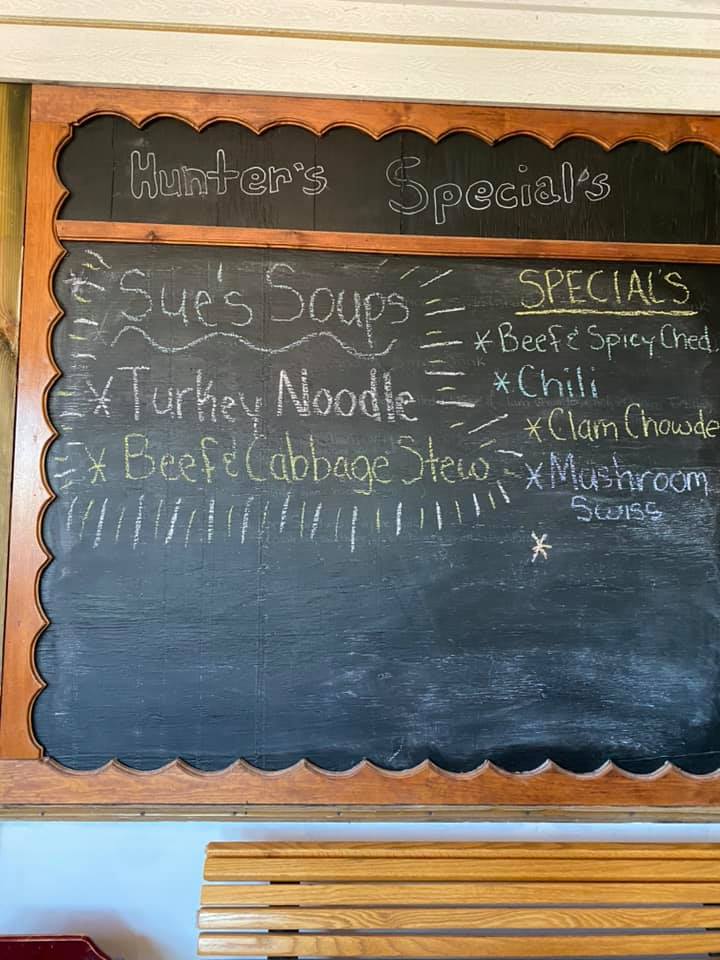 Hunter's Special's
Sue's Soups
* Turkey Noodle
* Beef & Cabbage Stew
SPECIAL'S
* Beef & Spicy Ched.
* Chili
* Clam Chowde
* Mushroom
Swiss
*